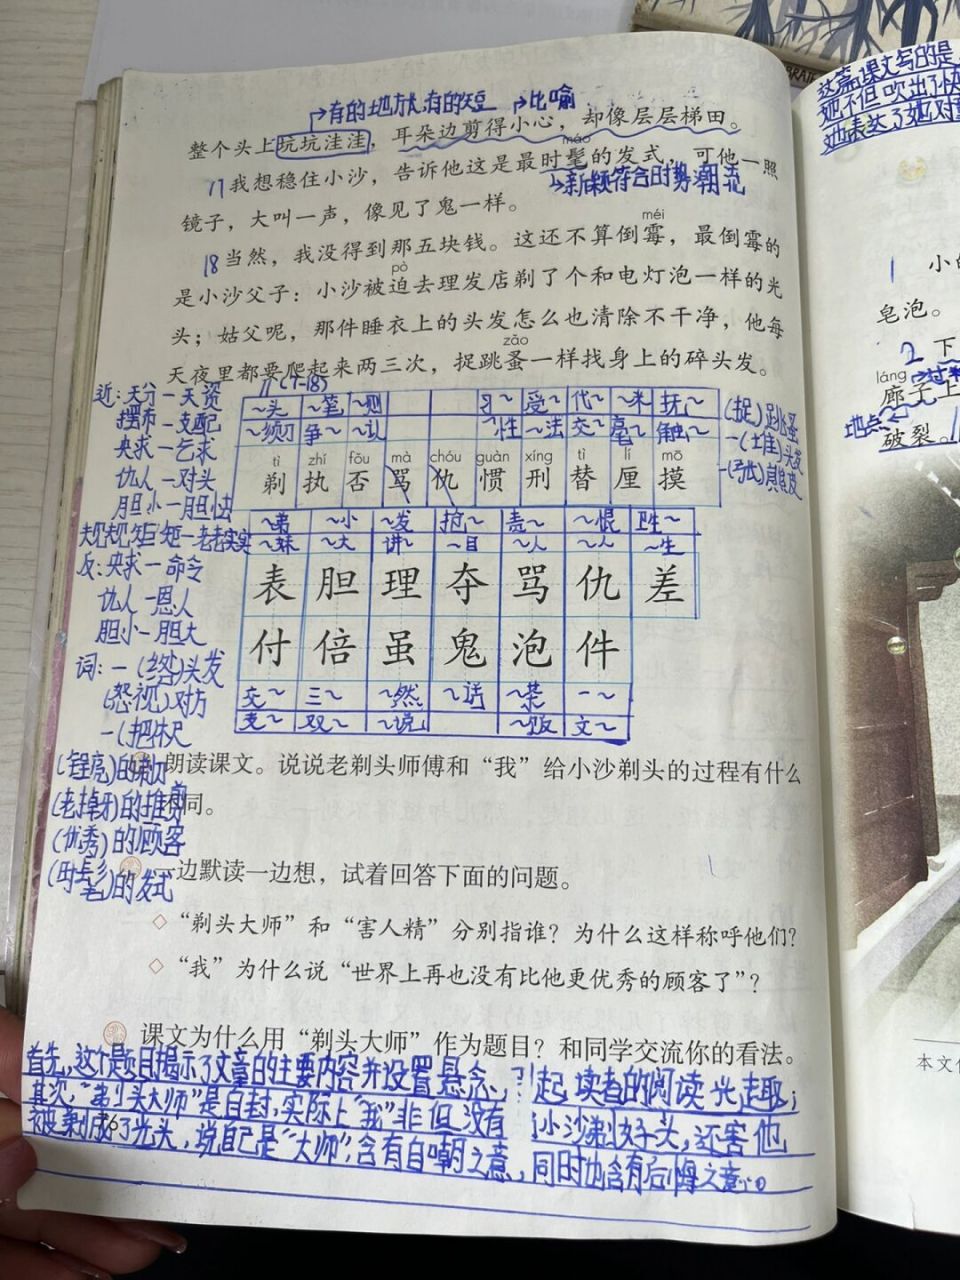 →有的地方长,有的短 →比喻
整个头上坑坑洼洼，耳朵边剪得小心，却像层层梯田。
máo
17我想稳住小沙，告诉他这是最时髦的发式，可他一照
→新颖符合时势潮流
镜子，大叫一声，像见了鬼一样。
méi
18当然，我没得到那五块钱。这还不算倒霉，最倒霉的
pò
是小沙父子：小沙被迫去理发店剃了个和电灯泡一样的光
头；姑父呢，那件睡衣上的头发怎么也清除不干净，他每
zǎo
天夜里都要爬起来两三次，捉跳蚤一样找身上的碎头发。
近:天分—天资
摆布—支配
央求—乞求
仇人—对头
胆小—胆怯
规规矩矩—老老实实
反:央求—命令
仇人—恩人
胆小—胆大
词:一(丝)头发
(怒视)对方
一(把)木尺
(锃亮)的剃刀
(老掉牙)的推剪
(优秀)的顾客
(时髦)的发式
(捉)跳蚤
一(堆)头发
一(张)真皮
11(7-18)
~头 ~笔 ~则 习~ 受~ 代~ ~米 抚~
~须刀 争~ ~认 ~性 ~法 交~ 毫~ 触~
tì zhí fǒu mà chóu guàn xíng tì lí mō
剃 执 否 骂 仇 惯 刑 替 厘 摸
~弟 ~小 ~发 抢~ 责~ ~恨 卫生~
~妹 ~大 讲~ ~目 ~人 ~人 ~生
表 胆 理 夺 骂 仇 差
付 倍 虽 鬼 泡 件
交~ 三~ ~然 ~话 ~茶 一~
支~ 双~ ~说 ~饭 文~
朗读课文。说说老剃头师傅和“我”给小沙剃头的过程有什么
同。
一边默读一边想，试着回答下面的问题。
◇ “剃头大师”和“害人精”分别指谁？为什么这样称呼他们？
◇ “我”为什么说“世界上再也没有比他更优秀的顾客了”？
课文为什么用“剃头大师”作为题目？和同学交流你的看法。
首先,这个题目揭示了文章的主要内容并设置悬念,引起读者的阅读兴趣;
其次,“剃头大师”是自封,实际上“我”非但没有给小沙剃好头,还害他
被剃成了光头,说自己是“大师”,含有自嘲之意,同时也含有后悔之意。
这篇课文写的是
她不但吹出了快
她表达了她对童
1 小的
皂泡。
2 下
láng
廊子上
地点
破裂。
本文作